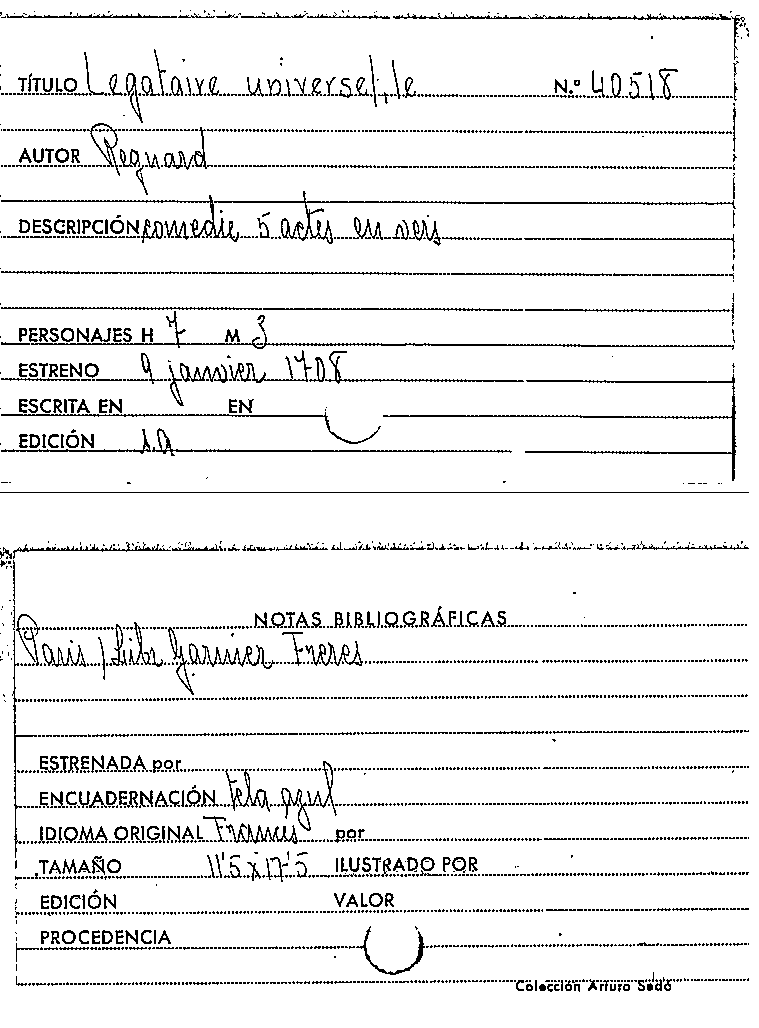 TÍTULO Legataire universel, le N.º 40518
AUTOR Regnard
DESCRIPCIÓN comedie 5 actes en vers
PERSONAJES H 7 M 3
ESTRENO 9 janvier 1708
ESCRITA EN EN
EDICIÓN s.a
NOTAS BIBLIOGRÁFICAS
Paris / Libr Garnier Freres
ESTRENADA por
ENCUADERNACIÓN tela azul
IDIOMA ORIGINAL Frances por
TAMAÑO 11'5 x 17'5 ILUSTRADO POR
EDICIÓN VALOR
PROCEDENCIA
Colección Arturo Sedó